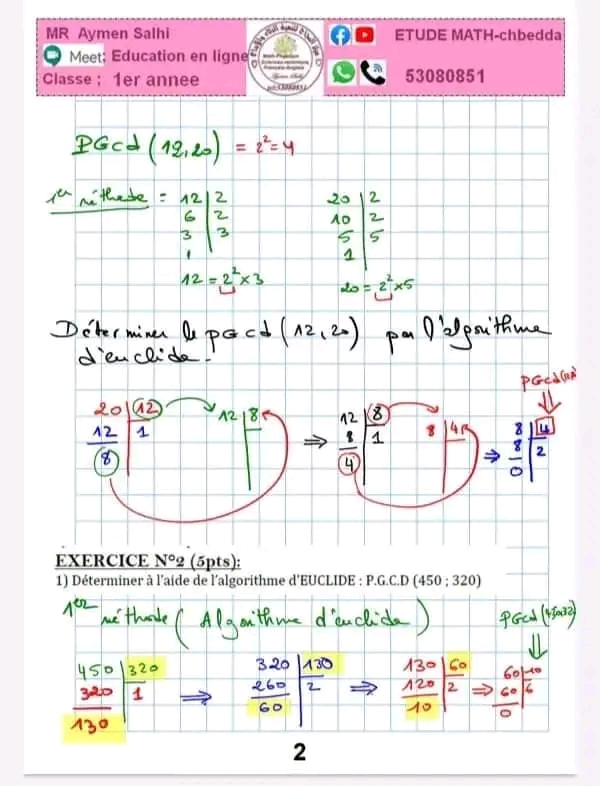 MR Aymen Salhi
Meet: Education en ligne
Classe : 1er annee
ETUDE MATH-chbedda
53080851
PGcd (12,20) = 2²=4
1er méthode : 12 | 2 20 | 2
6 | 2 10 | 2
3 | 3 5 | 5
1 1
12 = 2² x 3 20 = 2² x 5
Déterminer le PGcd (12,20) par l'algorithme
d'euclide.
PGcd(
20 | 12 12 | 8 ⇒ 12 | 8 8 | 4 ⇒ 8 | 4
12 | 1 8 | 1 8 | 2
8 4 0
EXERCICE N°2 (5pts):
1) Déterminer à l'aide de l'algorithme d'EUCLIDE : P.G.C.D (450 ; 320)
1er méthode ( Algorithme d'euclide )
450 | 320 ⇒ 320 | 130 ⇒ 130 | 60 ⇒ 60 | 10
320 | 1 260 | 2 120 | 2 60 | 6
130 60 10 0
2